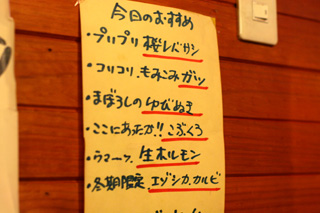 今日のおすすめ
・プリプリ 桜レバサシ
・コリコリ、もみこみガツ
・まぼろしの ゆびぬき
・ここにあったか!! こぶくろ
・ウマーク、生ホルモン
・冬期限定、エゾシカ、カルビ